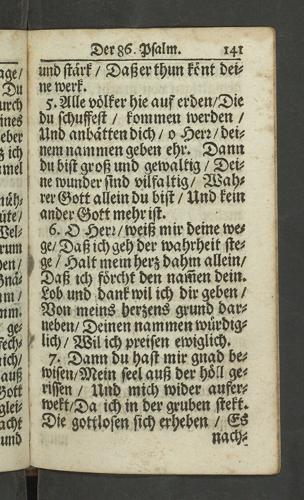 Der 86. Psalm. 141
und stärk / Daß er thun könt dei-
ne werk.
5. Alle völker hie auf erden / Die
du schuffest / kommen werden /
Und anbätten dich / o Herz / dei-
nem nammen geben ehr. Dann
du bist groß und gewaltig / Dei-
ne wunder sind vilfaltig / Wah-
rer Gott allein du bist / Und kein
ander Gott mehr ist.
6. O Herz / weiß mir deine we-
ge / Daß ich geh der wahrheit ste-
ge / Halt mein herz dahin allein /
Daß ich förcht den nam̃en dein.
Lob und dank wil ich dir geben /
Von meins herzens grund dar-
neben / Deinen nammen würdig-
lich / Wil ich preisen ewiglich.
7. Dann du hast mir gnad be-
wisen / Mein seel auß der höll ge-
rissen / Und mich wider aufer-
wekt / Da ich in der gruben stekt.
Die gottlosen sich erheben / Es
nach-
age /
Du
urch
ines
eber
ß ich
mel
näh-
üte /
Wel-
rum
den /
Gnä-
nm /
nm.
ge-
fech-
nich /
auß
Gott
glei-
acht
und